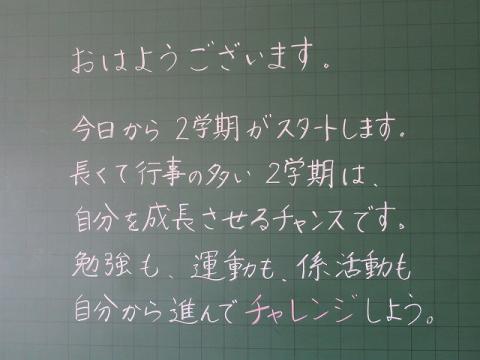 おはようございます。
今日から2学期がスタートします。
長くて行事の多い2学期は、
自分を成長させるチャンスです。
勉強も、運動も、係活動も
自分から進んでチャレンジしよう。